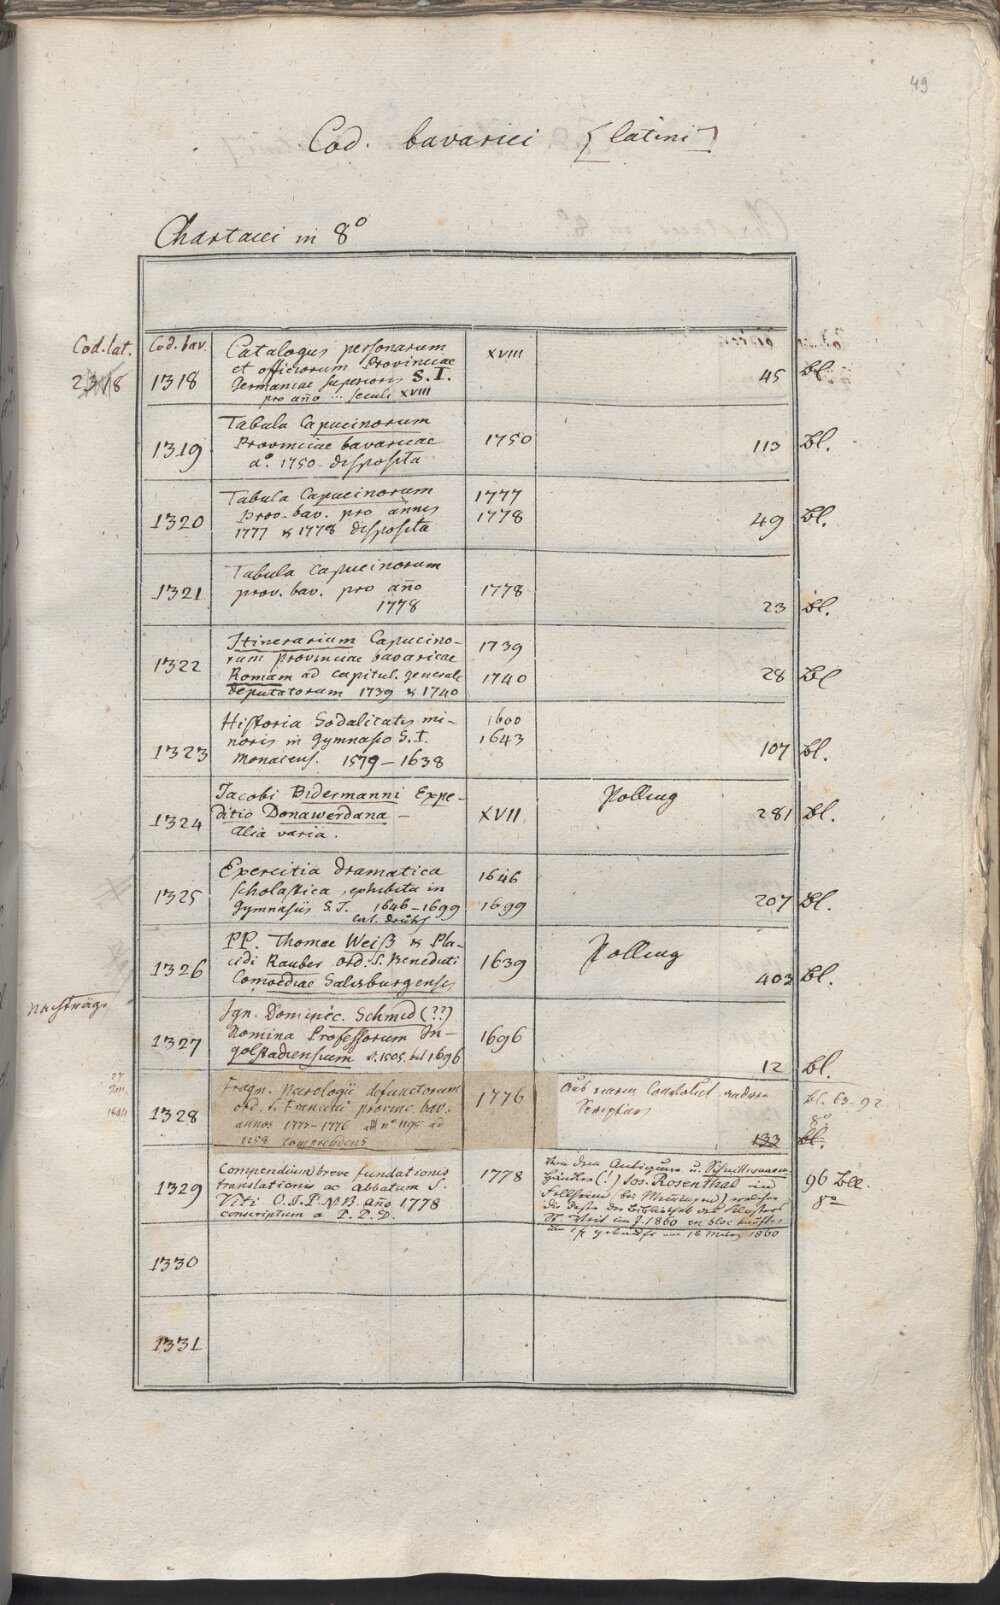 49
Cod. bavarici [latini]
Chartacei in 8°
Cod. lat. Cod. bav.
2318 1318 Catalogus personarum XVIII 45 Bl.
et officiorum Provinciae
Germaniae Superioris S. I.
pro año ... seculi XVIII
1319 Tabula Capucinorum 1750 113 Bl.
Provinciae bavaricae
a°. 1750 disposita
1320 Tabula Capucinorum 1777 49 Bl.
prov. bav. pro annis 1778
1777 & 1778 disposita
1321 Tabula Capucinorum 1778 23 Bl.
prov. bav. pro año
1778
1322 Itinerarium Capucino- 1739 28 Bl
rum provinciae bavaricae
Romam ad capitul. generale 1740
deputatorum 1739 & 1740
1323 Historia Sodalitatis mi- 1600 107 Bl.
noris in gymnasio S. I. 1643
Monacens. 1579 – 1638
1324 Jacobi Bidermanni Expe- XVII Polling 281 Bl.
ditio Donawerdana –
alia varia.
1325 Exercitia dramatica 1646 207 Bl.
scholastica, exhibita in
gymnasiis S. I. 1646 – 1699 1699
1326 PP. Thomae Weiß & Pla- 1639 Polling 403 Bl.
cidi Rauber ord. S. Benedicti
Comoediae Salisburgenses
Nachträge
1327 Ign. Dominic. Schmid (??) 1696 12 Bl.
Nomina Professorum In-
golstadiensium 1696
27 Jan. 1844
1328 Fragm. necrologii defunctorum 1776 133 Bl. Bl. 63-92
ord. S. Francisci provinc. bav. 8°
annos 1775 – 1776 n° 1199 ad
1258 comprehendens
1329 Compendium breve fundationis 1778 Von dem Antiquar u. Schnittwaaren 96 Bll.
translationis ac Abbatum S. händler (!) Jos. Rosenthal in 8°
Viti O. S. P. N. B. año 1778 Fellheim (bei Memmingen) welcher
conscriptum a P. P. D. die Reste der Bibliothek des Klosters
St. Veit im J. 1860 en bloc kaufte
um 1 f gekauft am 15 März 1860
1330
1331